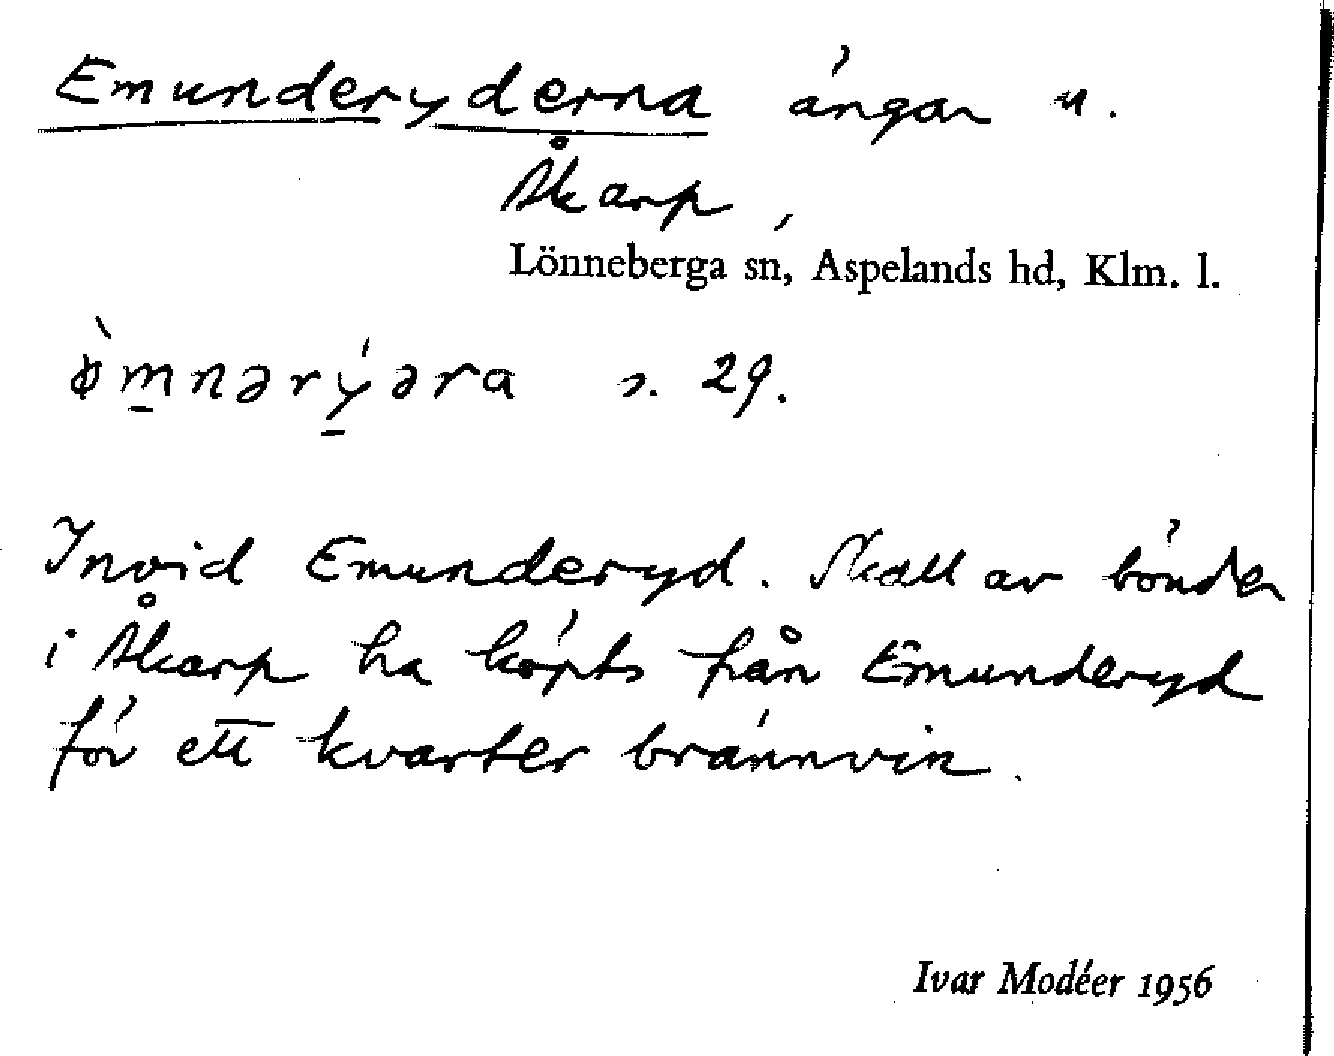 Emunderyderna ängar u.
Åkarp,
Lönneberga sn, Aspelands hd, Klm. l.
s. 29.
Invid Emunderyd. Skall av bönder
i Åkarp ha köpts från Emunderyd
för ett kvarter brännvin.
Ivar Modéer 1956